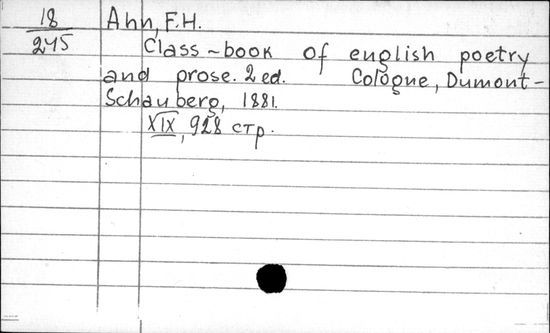 18 Ahn, F.H.
245 Class-book of english poetry
and prose. 2 ed. Cologne, Dumont-
Schauberg, 1881.
XIX, 928 стр.